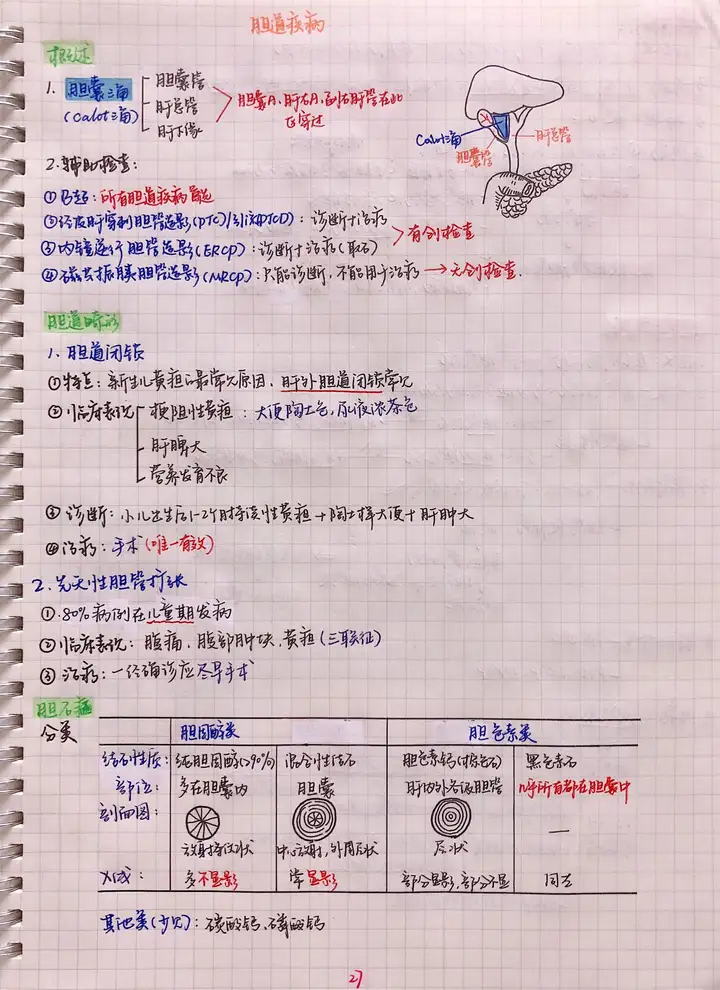 胆道疾病
概述
1. 胆囊三角 胆囊管
(Calot三角) 肝总管
肝下缘
胆囊A、肝右A、副右肝管在此
区穿过
Calot三角
胆囊管
肝总管
2. 辅助检查:
①B超: 所有胆道疾病首选
②经皮肝穿刺胆管造影(PTC)/引流(PTCD): 诊断+治疗
③内镜逆行胆管造影(ERCP): 诊断+治疗(取石)
有创检查
④磁共振胰胆管造影(MRCP): 只能诊断, 不能用于治疗→无创检查.
胆道畸形
1. 胆道闭锁
①特点: 新生儿黄疸最常见原因, 肝外胆道闭锁常见
②临床表现 梗阻性黄疸: 大便陶土色, 尿液浓茶色
肝脾大
营养发育不良
③诊断: 小儿出生后1-2个月持续性黄疸+陶土样大便+肝肿大
④治疗: 手术(唯一有效)
2. 先天性胆管扩张
①80%病例在儿童期发病
②临床表现: 腹痛、腹部肿块、黄疸(三联征)
③治疗: 一经确诊应尽早手术
胆石症
分类
胆固醇类 胆色素类
结石性质: 纯胆固醇(>90%) 混合性结石 胆色素钙(棕色石) 黑色素石
部位: 多在胆囊内 胆囊 肝内外各级胆管 几乎所有都在胆囊中
剖面图: —
放射条纹状 中心放射, 外周层状 层状
X线: 多不显影 常显影 部分显影, 部分不显 同左
其他类(少见): 碳酸钙、磷酸钙
27